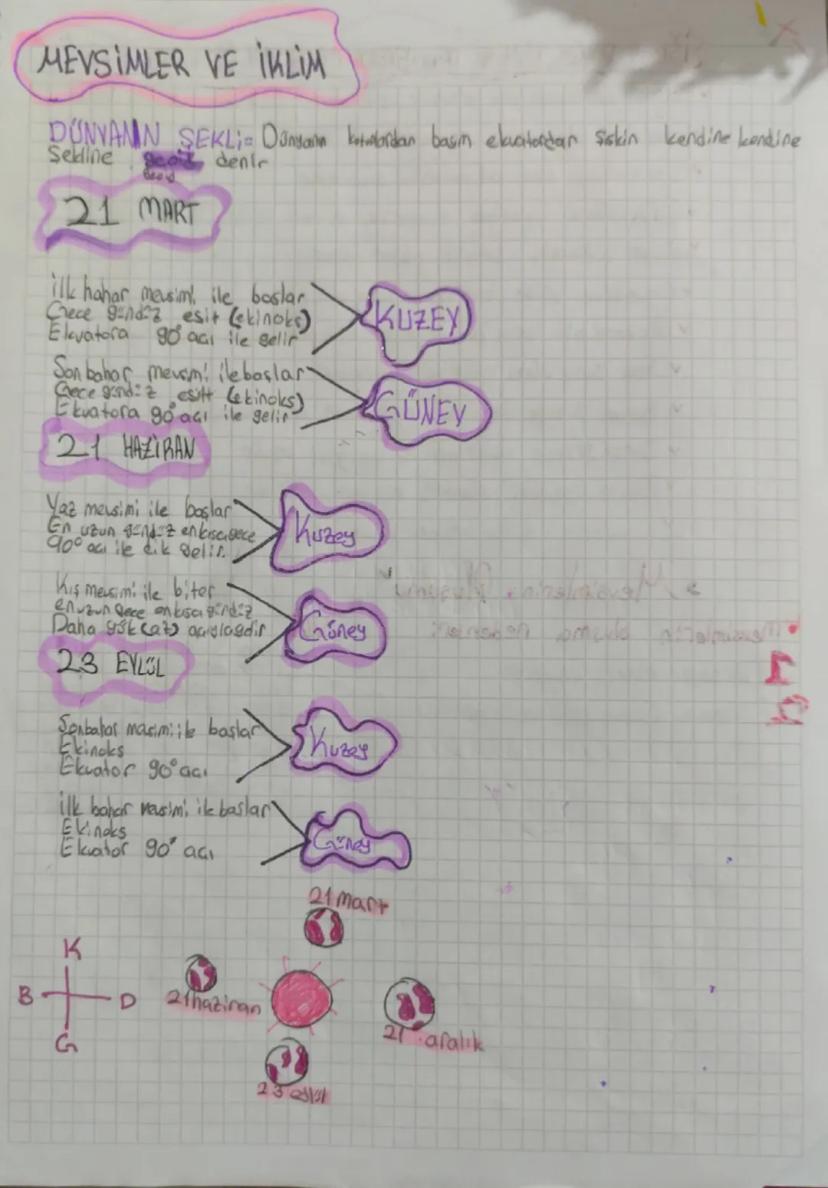 MEVSİMLER VE İKLİM
DÜNYANIN ŞEKLİ= Dünyanın kutuplardan basım ekvatordan şişkin kendine kendine
şekline geoid denir
geoid
21 MART
İlk bahar mevsimi ile başlar
Gece gündüz eşit (ekinoks)
Ekvatora 90° açı ile gelir
KUZEY
Son bahar mevsimi ile başlar
Gece gündüz eşitt (ekinoks)
Ekvatora 90° açı ile gelir
GÜNEY
21 HAZİRAN
Yaz mevsimi ile başlar
En uzun gündüz en kısa gece
90° açı ile dik gelir.
Kuzey
Kış mevsimi ile biter
en uzun gece en kısa gündüz
Daha (az)
Güney
23 EYLÜL
Sonbahar ile başlar
Ekinoks
Ekvator 90° açı
Kuzey
İlk bahar mevsimi ile başlar
Ekinoks
Ekvator 90° açı
Güney
21 mart
K
B D
G
21 haziran
21 aralık
23 eylül